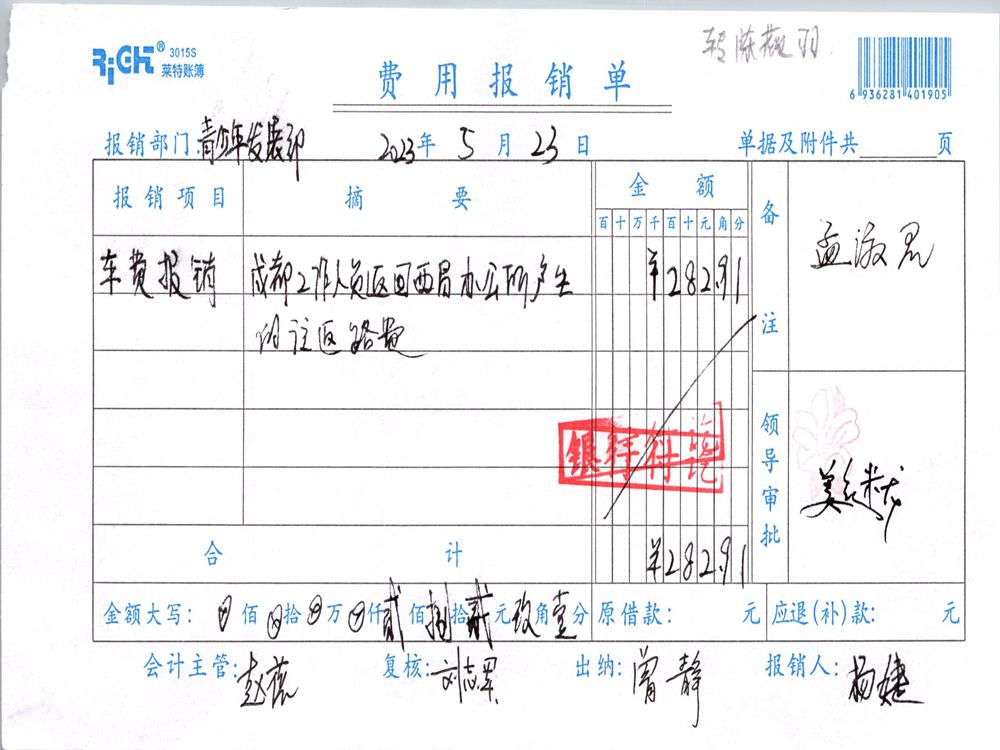 RiCH® 3015S
莱特账簿
费用报销单
6 936281 401905
报销部门:青少年发展部 2023年5月23日 单据及附件共 页
报销项目 摘要 金额 备注
百十万千百十元角分
车费报销 成都工作人员返回西昌办公所产生 ¥28291
的往返路费
银行付讫
领导审批
合计 ¥28291
金额大写: 0佰0拾0万0仟贰佰捌拾贰元玖角壹分 原借款: 元 应退(补)款: 元
会计主管: 复核: 刘志军 出纳: 曾静 报销人: 杨婕